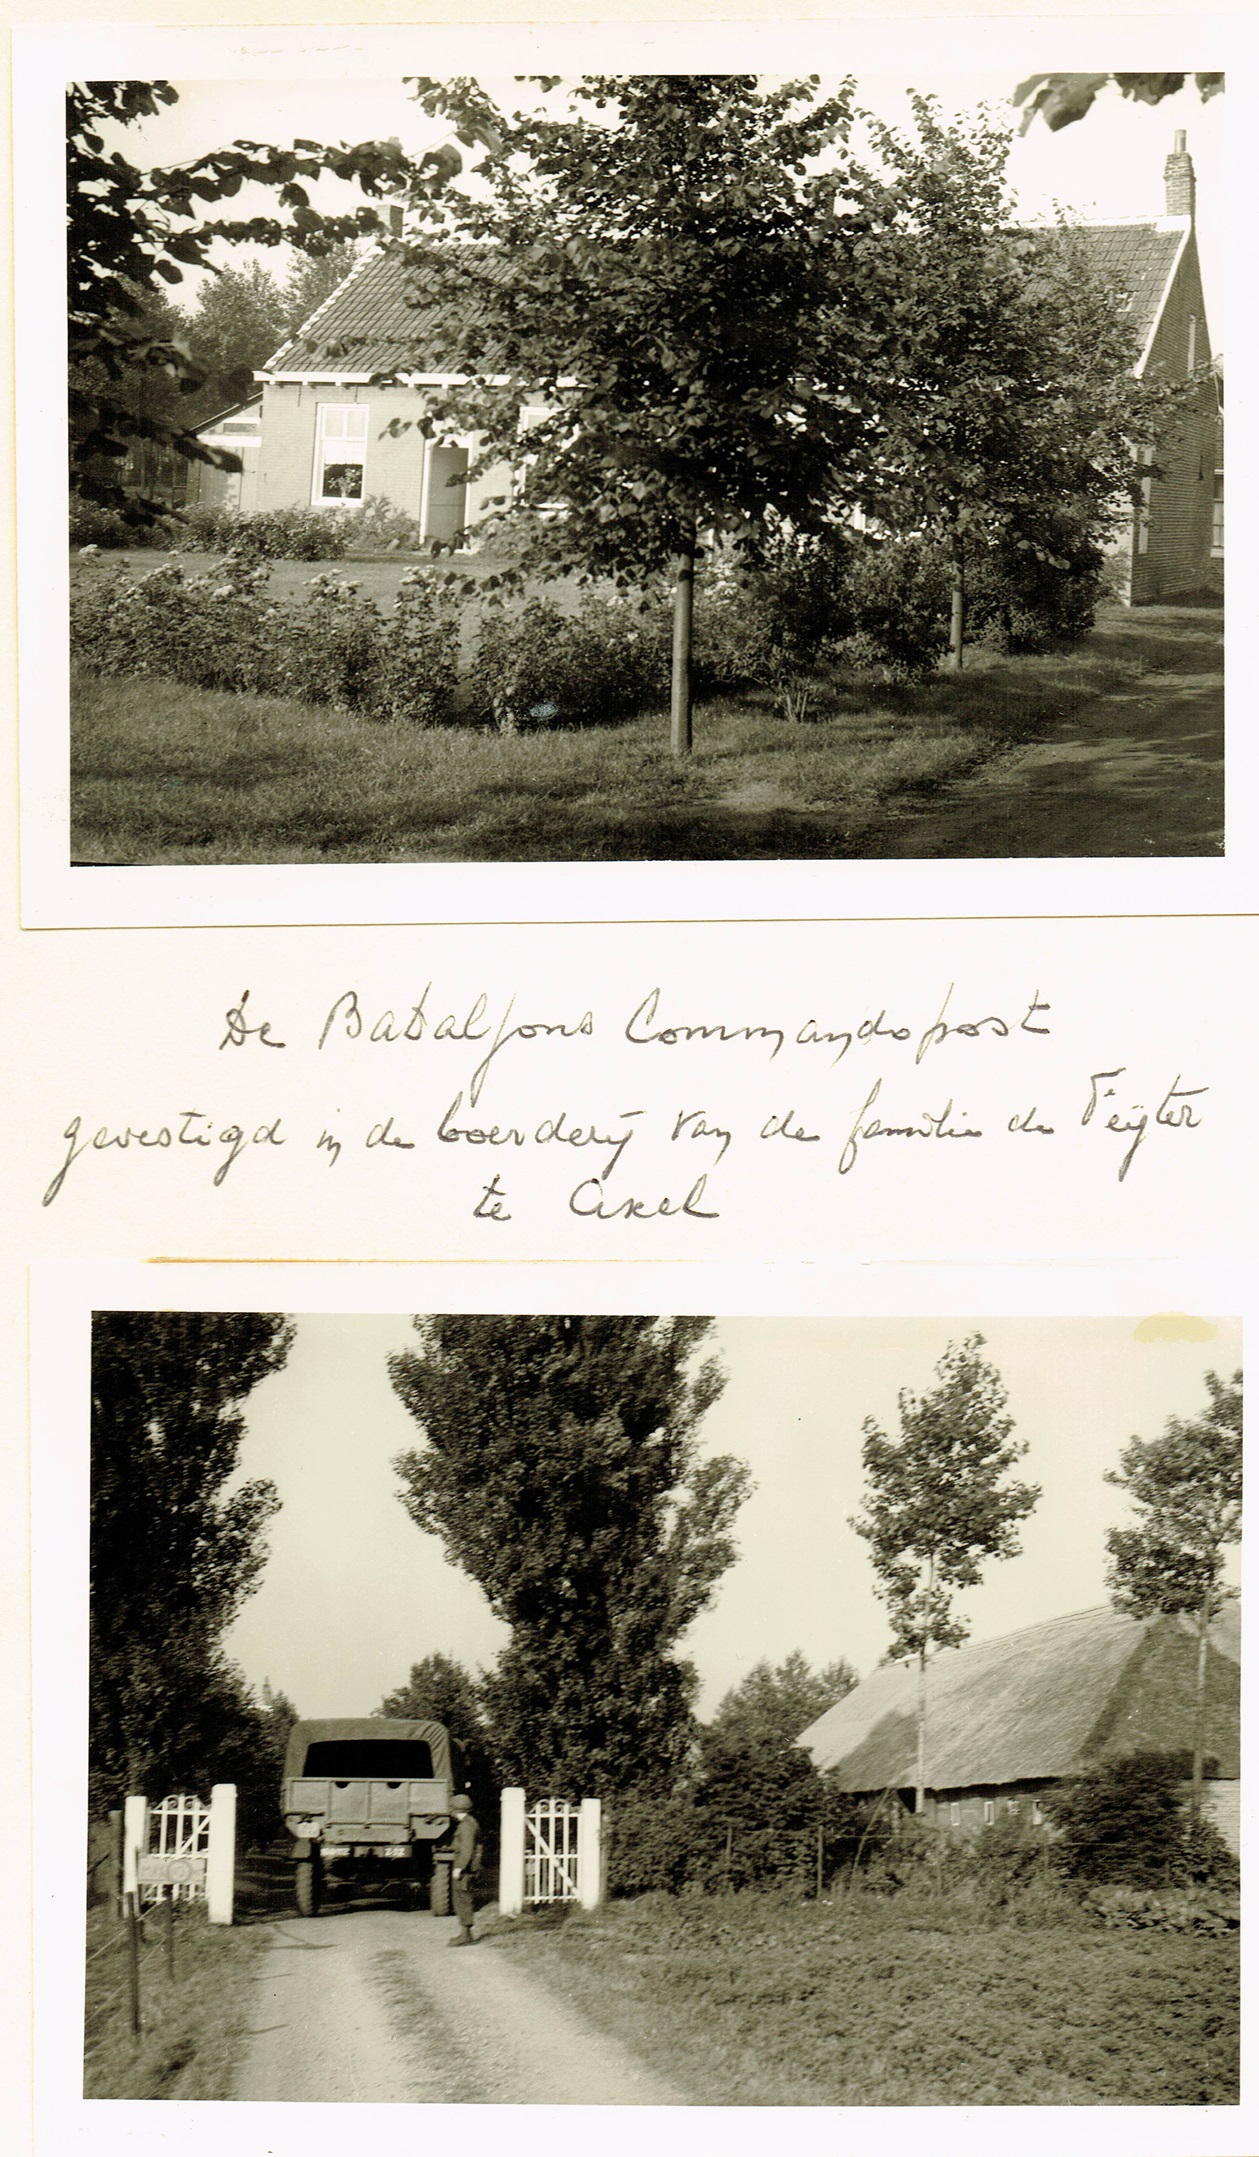 De Bataljons Commandopost
gevestigd in de boerderij van de familie de Feijter
te Axel